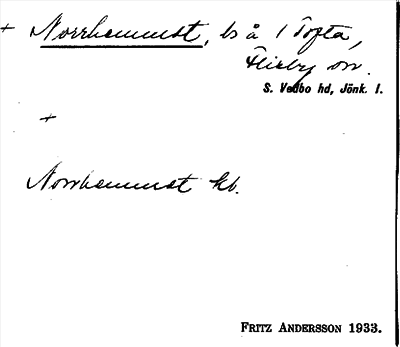 + Norrhemmet, bs å 1 Tofta,
Flisby sn.
S. Vedbo hd, Jönk. l.
+
Norrhemmet kb.
FRITZ ANDERSSON 1933.